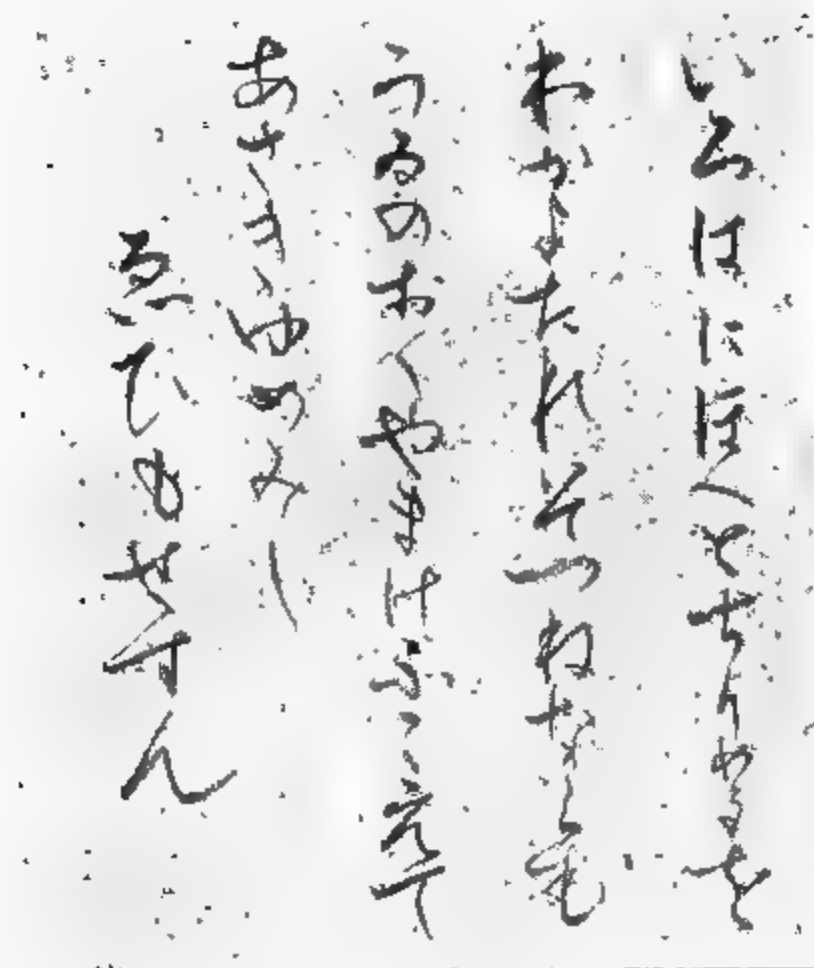 いろはにほへとちりぬるを
わかよたれそつねならむ
うゐのおくやまけふこえて
あさきゆめみし
ゑひもせすん